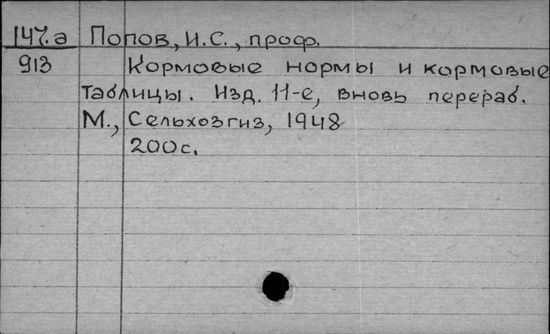 147.а Попов, И.С., проф.
913 Кормовые нормы и кормовые
таблицы. Изд. 11-е, вновь перераб.
М., Сельхозгиз, 1948
200с.